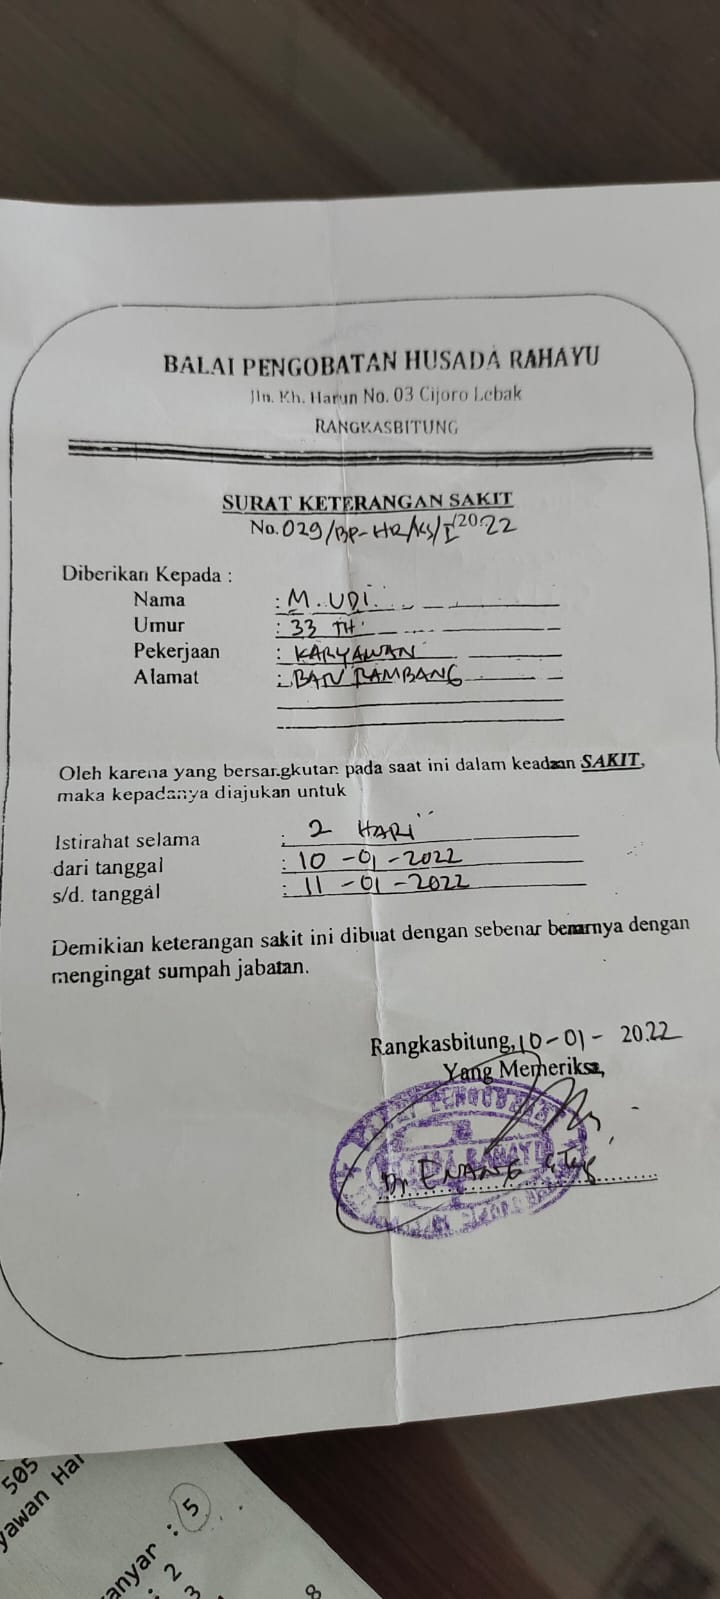 BALAI PENGOBATAN HUSADA RAHAYU
Jln. Kh. Harun No. 03 Cijoro Lebak
RANGKASBITUNG
SURAT KETERANGAN SAKIT
No. 029/BP-HR/KS/I/2022
Diberikan Kepada :
Nama : M. UDI
Umur : 33 TH
Pekerjaan : KARYAWAN
Alamat : RAMBANG
Oleh karena yang bersangkutan pada saat ini dalam keadaan SAKIT,
maka kepadanya diajukan untuk
Istirahat selama : 2 HARI
dari tanggal : 10-01-2022
s/d. tanggal : 11-01-2022
Demikian keterangan sakit ini dibuat dengan sebenar benarnya dengan
mengingat sumpah jabatan.
Rangkasbitung, 10-01-2022
Yang Memeriksa,
Dr ENANG
505
yawan Har
anyar : 5
: 2
3
8